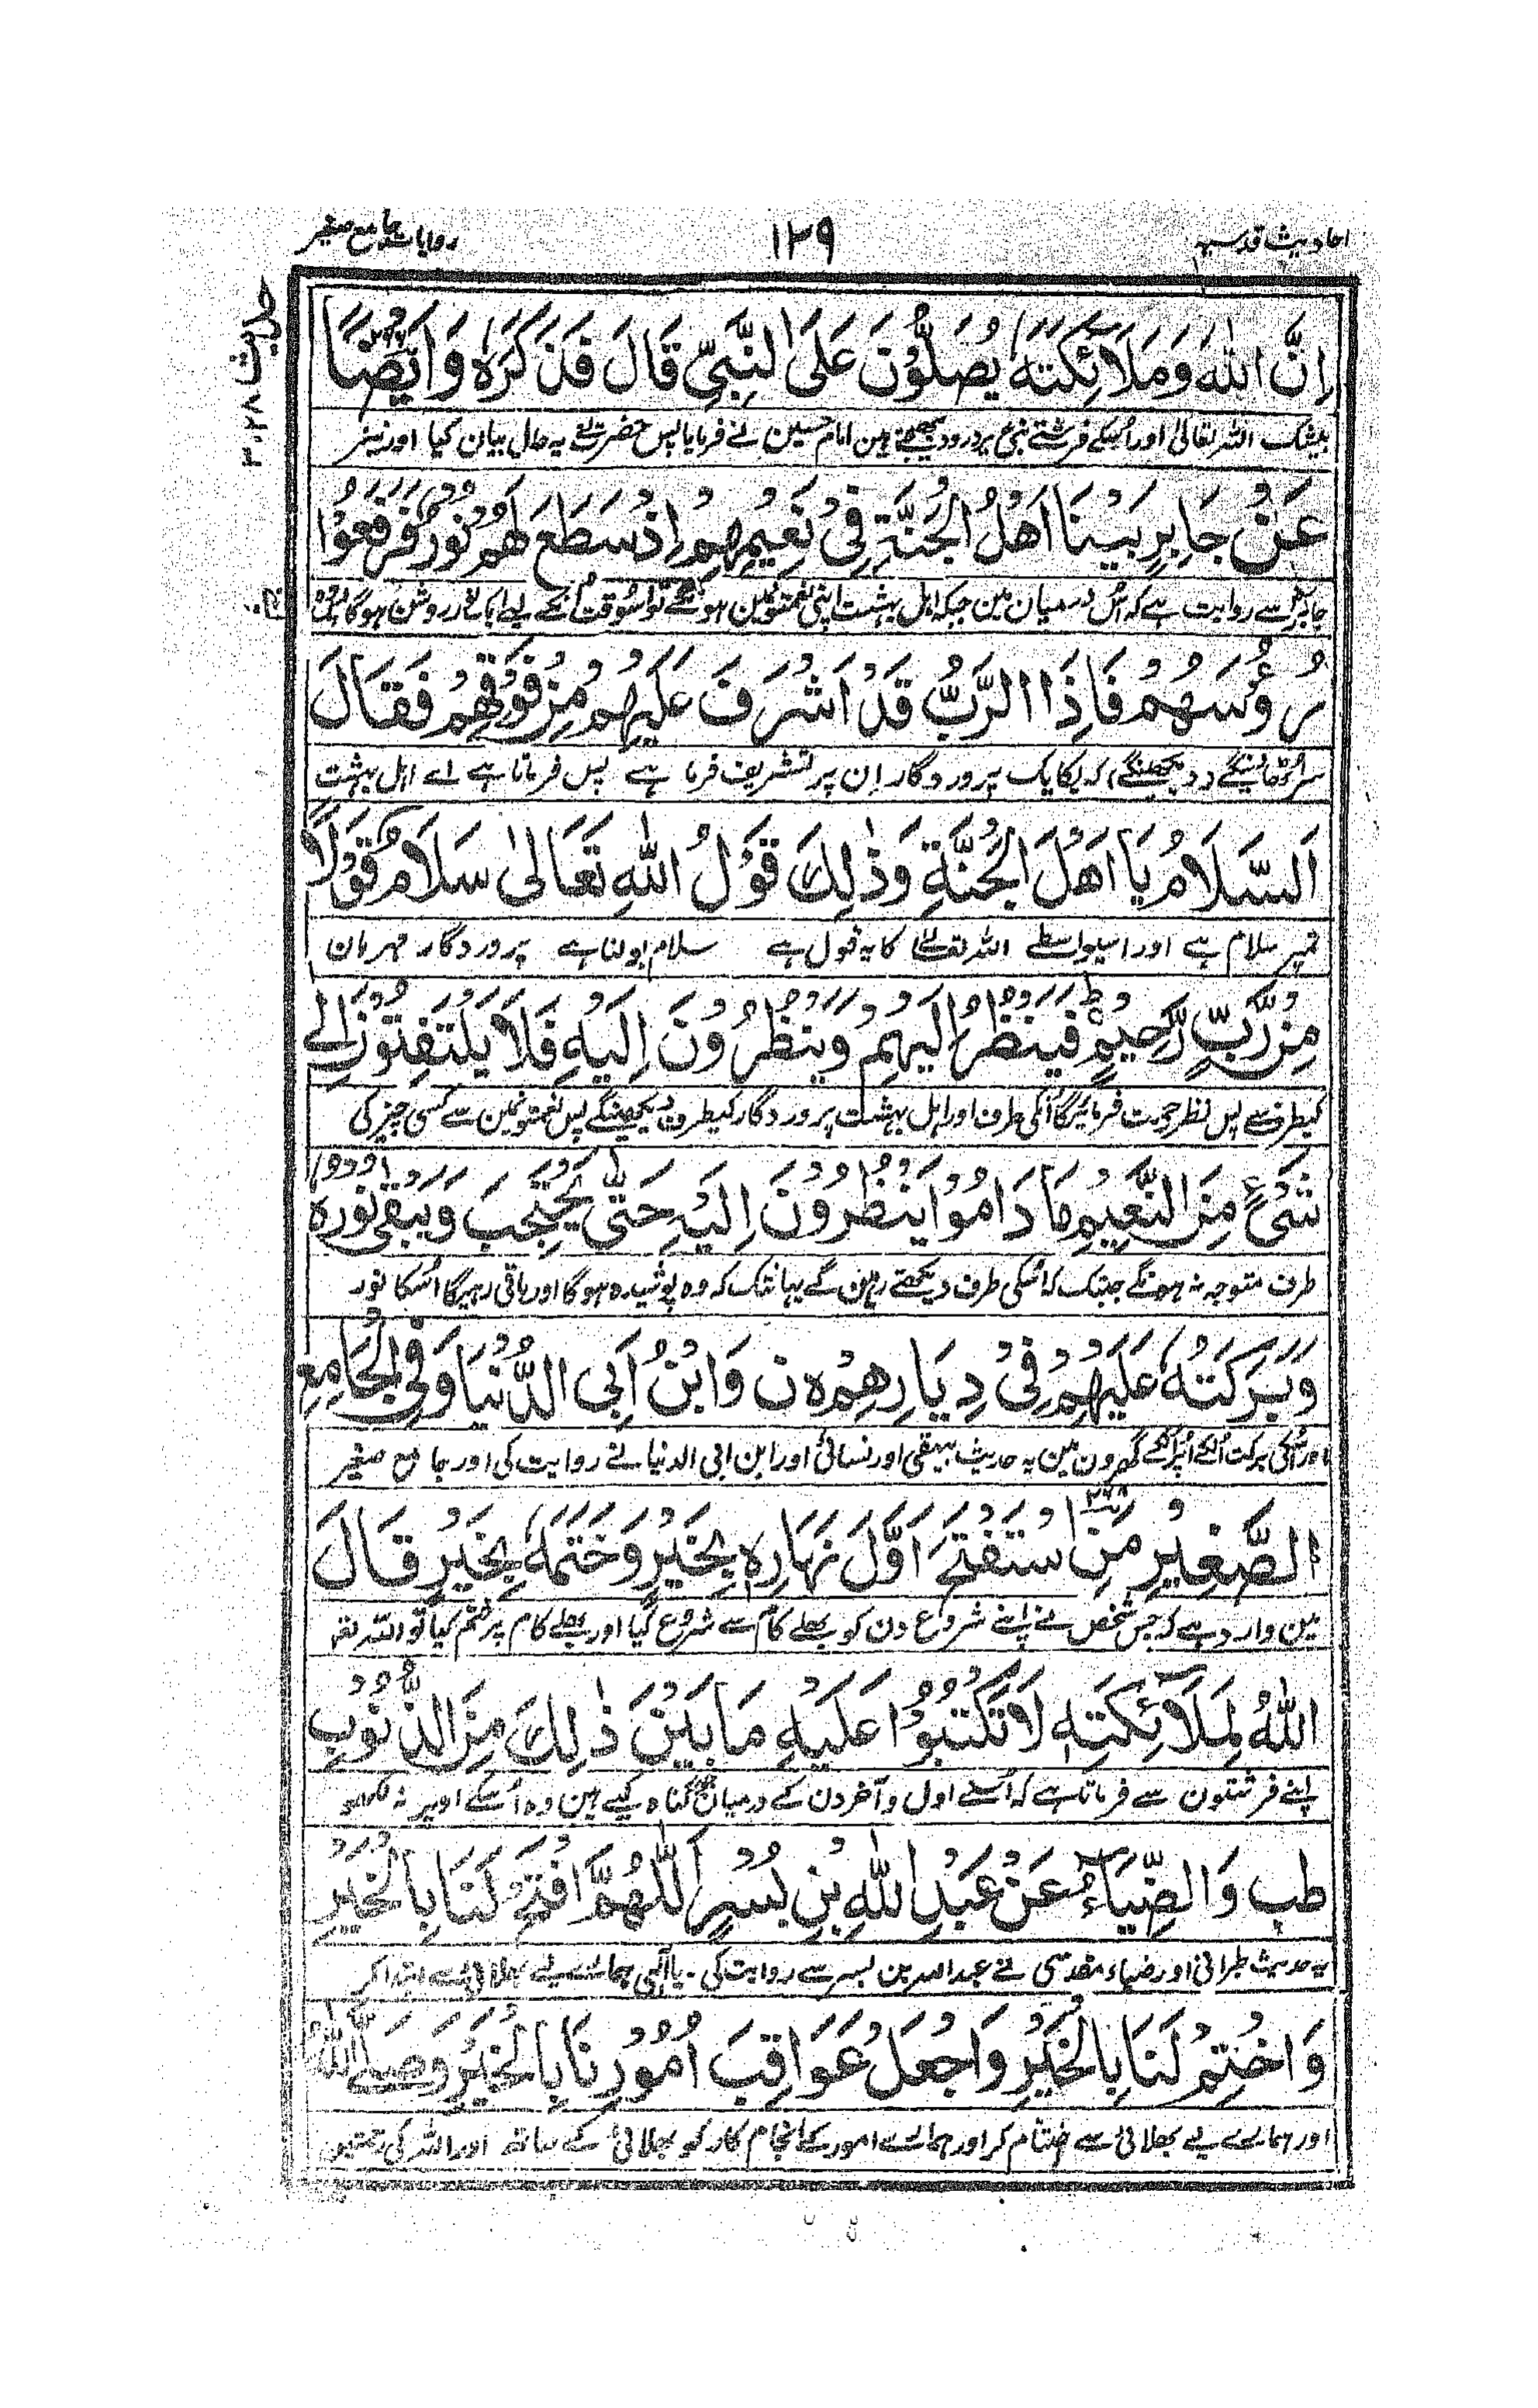 احادیث قدسیہ
۱۲۹
روایات جامع صغیر
حدیث ۳۰۲۸
اِنَّ اللّٰهَ وَمَلَآئِكَتَهٗ يُصَلُّوْنَ عَلَى النَّبِيِّ قَالَ فَذَكَرَهٗ وَاَيْضًا
بیشک اللہ تعالیٰ اور اُسکے فرشتے نبی پر درود بھیجتے ہین امام حسین نے فرمایا پس حضرت نے یہ حال بیان کیا اور نیز
عَنْ جَابِرٍ بَيْنَا اَهْلُ الْجَنَّةِ فِيْ نَعِيْمِهِمْ اِذْ سَطَعَ لَهُمْ نُوْرٌ فَرَفَعُوْا
جابر سے روایت ہے کہ اُس درمیان مین جبکہ اہل بہشت اپنی نعمتونمین ہونگے تو اسوقت اُنکے لیے ایک نور روشن ہوگا
رُءُوْسَهُمْ فَاِذَا الرَّبُّ قَدْ اَشْرَفَ عَلَيْهِمْ مِنْ فَوْقِهِمْ فَقَالَ
سر اُٹھائینگے دیکھینگے کہ یکایک پروردگار اِن پر تشریف فرما ہے پس فرماتا ہے اے اہل بہشت
اَلسَّلَامُ يَا اَهْلَ الْجَنَّةِ وَذٰلِكَ قَوْلُ اللّٰهِ تَعَالٰى سَلَامٌ قَوْلًا
تمپر سلام ہے اور اسیواسطے اللہ تعالےٰ کا یہ قول ہے سلام بولنا ہے پروردگار مہربان
مِنْ رَّبٍّ رَّحِيْمٍ فَيَنْظُرُ اِلَيْهِمْ وَيَنْظُرُوْنَ اِلَيْهِ فَلَا يَلْتَفِتُوْنَ اِلٰى
کیطرف سے پس نظر رحمت فرمائیگا اُنکی طرف اور اہل بہشت پروردگار کیطرف دیکھینگے پس نعمتونمین سے کسی چیز کی
شَيْءٍ مِنَ النَّعِيْمِ مَا دَامُوْا يَنْظُرُوْنَ اِلَيْهِ حَتّٰى يَحْتَجِبَ وَيَبْقٰى نُوْرُهٗ
طرف متوجہ نہ ہونگے جبتک کہ اُسکی طرف دیکھتے رہین گے یہانتک کہ وہ پوشیدہ ہوگا اور باقی رہیگا اُسکا نور
وَبَرَكَتُهٗ عَلَيْهِمْ فِيْ دِيَارِهِمْ ه ن وَابْنُ اَبِي الدُّنْيَا وَفِي الْجَامِعِ
اور اُسکی برکت اُنکے اُپر اُنکے گھرون مین یہ حدیث بیہقی اور نسائی اور ابن ابی الدنیا نے روایت کی اور جامع صغیر
الصَّغِيْرِ مَنِ اسْتَفْتَحَ اَوَّلَ نَهَارِهٖ بِخَيْرٍ وَخَتَمَهٗ بِخَيْرٍ قَالَ
مین وارد ہے کہ جس شخص نے اپنے شروع دن کو بھلے کام سے شروع کیا اور بھلے کام پر ختم کیا تو اللہ تعہ
اللّٰهُ لِمَلَآئِكَتِهٖ لَا تَكْتُبُوْا عَلَيْهِ مَا بَيْنَ ذٰلِكَ مِنَ الذُّنُوْبِ
اپنے فرشتون سے فرماتا ہے کہ اُسنے اول و آخر دن کے درمیان جو گناہ کیے ہین وہ اُسکے اوپر نہ لکھو
طب وَالضِّيَآءُ عَنْ عَبْدِ اللّٰهِ بْنِ بُسْرٍ اَللّٰهُمَّ افْتَحْ لَنَا بِالْخَيْرِ
یہ حدیث طبرانی اور ضیاء مقدسی نے عبد اللہ بن بسر سے روایت کی ۔ یا آلٰہی ہمارے لیے بھلائی سے ابتدا کر
وَاخْتِمْ لَنَا بِالْخَيْرِ وَاجْعَلْ عَوَاقِبَ اُمُوْرِنَا بِالْخَيْرِ وَصَلَّى اللّٰهُ
اور ہمارے لیے بھلائی سے ختتام کر اور ہمارے امور کے انجام کار کو بھلائی کے ساتھ اور اللہ کی رحمتین